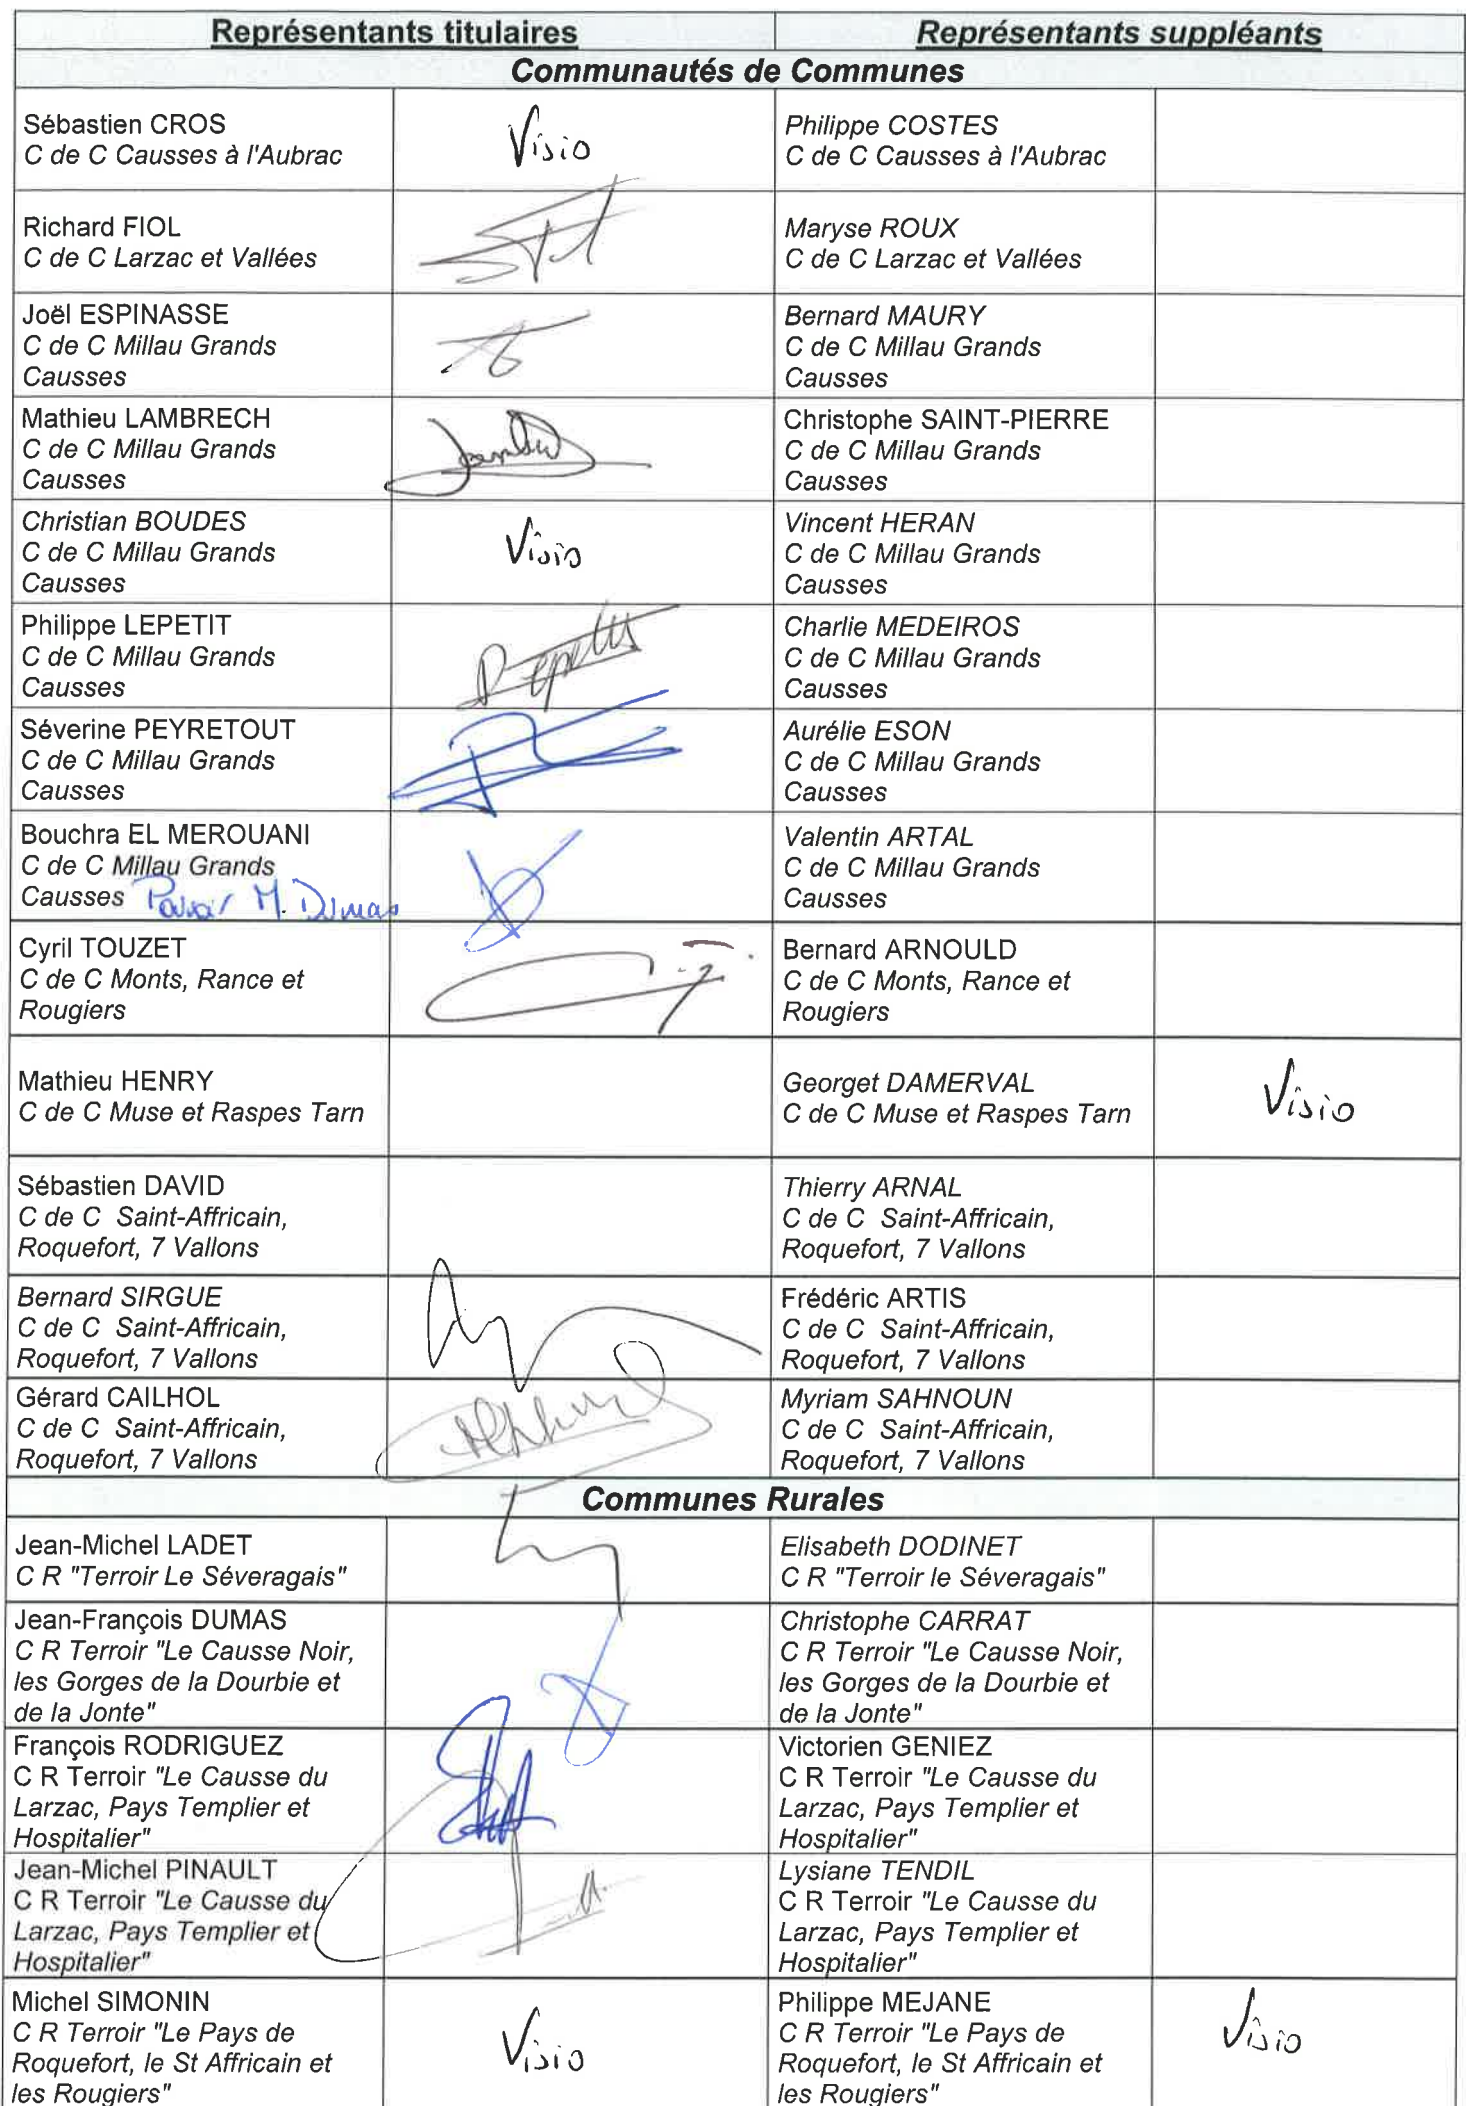 Représentants titulaires
Représentants suppléants
Communautés de Communes
Sébastien CROS
C de C Causses à l'Aubrac
Visio
Philippe COSTES
C de C Causses à l'Aubrac
Richard FIOL
C de C Larzac et Vallées
Maryse ROUX
C de C Larzac et Vallées
Joël ESPINASSE
C de C Millau Grands
Causses
Bernard MAURY
C de C Millau Grands
Causses
Mathieu LAMBRECH
C de C Millau Grands
Causses
Christophe SAINT-PIERRE
C de C Millau Grands
Causses
Christian BOUDES
C de C Millau Grands
Causses
Visio
Vincent HERAN
C de C Millau Grands
Causses
Philippe LEPETIT
C de C Millau Grands
Causses
Charlie MEDEIROS
C de C Millau Grands
Causses
Séverine PEYRETOUT
C de C Millau Grands
Causses
Aurélie ESON
C de C Millau Grands
Causses
Bouchra EL MEROUANI
C de C Millau Grands
Causses Pouvoir M. Dumas
Valentin ARTAL
C de C Millau Grands
Causses
Cyril TOUZET
C de C Monts, Rance et
Rougiers
Bernard ARNOULD
C de C Monts, Rance et
Rougiers
Mathieu HENRY
C de C Muse et Raspes Tarn
Georget DAMERVAL
C de C Muse et Raspes Tarn
Visio
Sébastien DAVID
C de C Saint-Affricain,
Roquefort, 7 Vallons
Thierry ARNAL
C de C Saint-Affricain,
Roquefort, 7 Vallons
Bernard SIRGUE
C de C Saint-Affricain,
Roquefort, 7 Vallons
Frédéric ARTIS
C de C Saint-Affricain,
Roquefort, 7 Vallons
Gérard CAILHOL
C de C Saint-Affricain,
Roquefort, 7 Vallons
Myriam SAHNOUN
C de C Saint-Affricain,
Roquefort, 7 Vallons
Communes Rurales
Jean-Michel LADET
C R "Terroir Le Séveragais"
Elisabeth DODINET
C R "Terroir le Séveragais"
Jean-François DUMAS
C R Terroir "Le Causse Noir,
les Gorges de la Dourbie et
de la Jonte"
Christophe CARRAT
C R Terroir "Le Causse Noir,
les Gorges de la Dourbie et
de la Jonte"
François RODRIGUEZ
C R Terroir "Le Causse du
Larzac, Pays Templier et
Hospitalier"
Victorien GENIEZ
C R Terroir "Le Causse du
Larzac, Pays Templier et
Hospitalier"
Jean-Michel PINAULT
C R Terroir "Le Causse du
Larzac, Pays Templier et
Hospitalier"
Lysiane TENDIL
C R Terroir "Le Causse du
Larzac, Pays Templier et
Hospitalier"
Michel SIMONIN
C R Terroir "Le Pays de
Roquefort, le St Affricain et
les Rougiers"
Visio
Philippe MEJANE
C R Terroir "Le Pays de
Roquefort, le St Affricain et
les Rougiers"
Visio